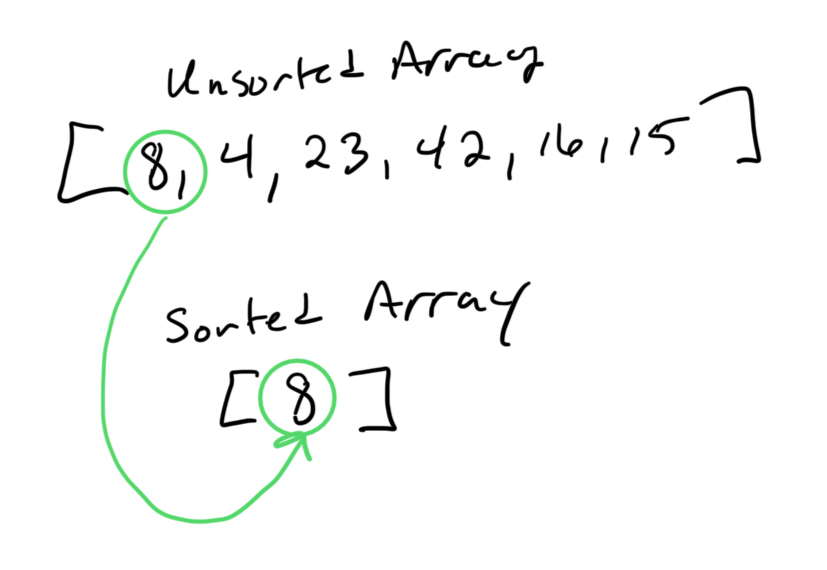 Unsorted Array
[ 8, 4, 23, 42, 16, 15 ]
Sorted Array
[ 8 ]